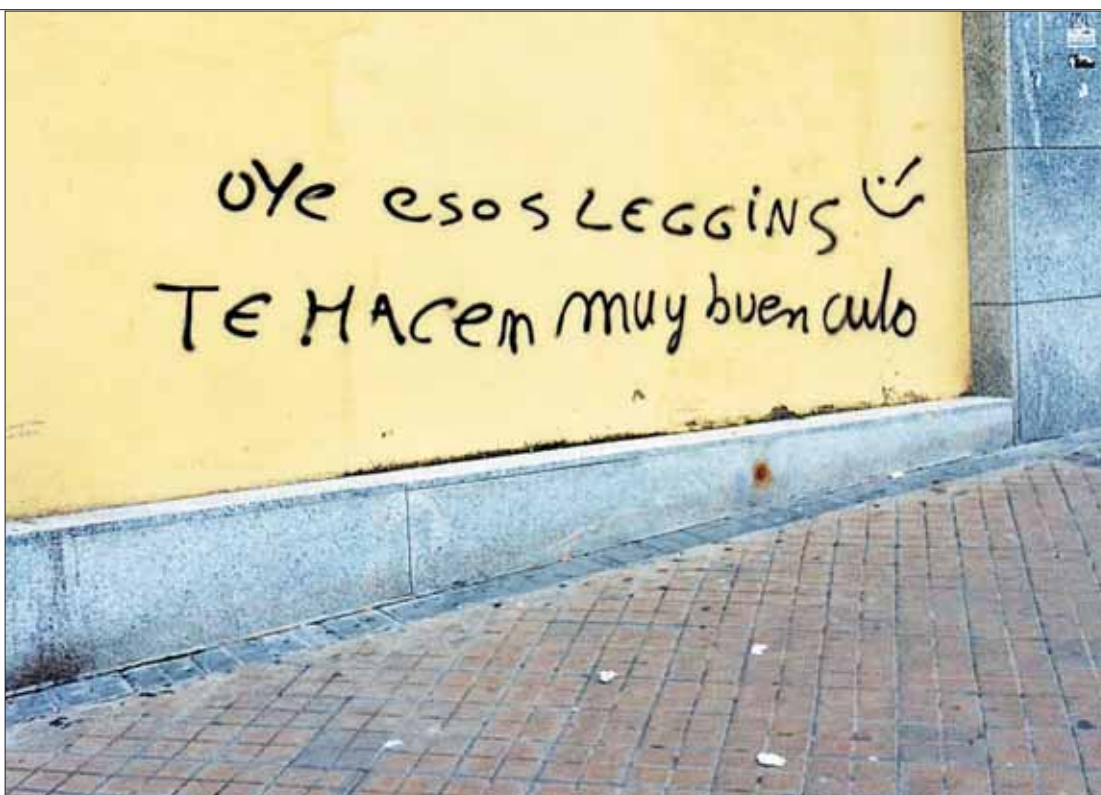 oye esos LEGGiNS
TE HACEN muy buen culo